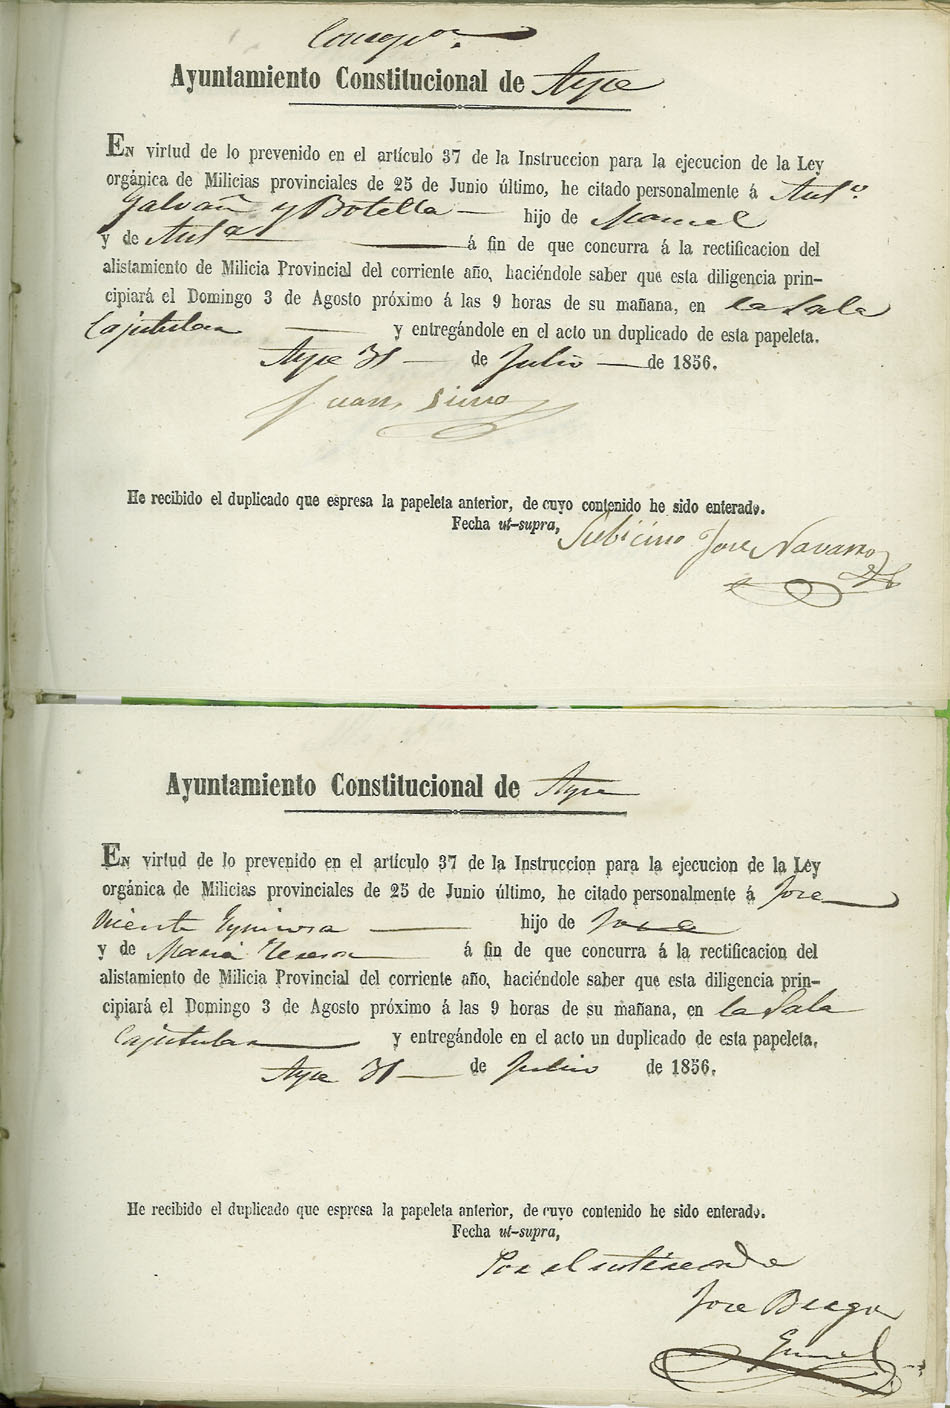 Ayuntamiento Constitucional de Aspe
En virtud de lo prevenido en el artículo 37 de la Instruccion para la ejecucion de la Ley
orgánica de Milicias provinciales de 25 de Junio último, he citado personalmente á Antº.
Galvañ y Botella hijo de Manuel
y de Antª á fin de que concurra á la rectificacion del
alistamiento de Milicia Provincial del corriente año, haciéndole saber que esta diligencia prin-
cipiará el Domingo 3 de Agosto próximo á las 9 horas de su mañana, en la Sala
Capitular y entregándole en el acto un duplicado de esta papeleta.
Aspe 31 de Julio de 1856.
Juan
He recibido el duplicado que espresa la papeleta anterior, de cuyo contenido he sido enterado.
Fecha ut-supra,
Jose Navarro
Ayuntamiento Constitucional de Aspe
En virtud de lo prevenido en el artículo 37 de la Instruccion para la ejecucion de la Ley
orgánica de Milicias provinciales de 25 de Junio último, he citado personalmente á Jose
Vicente hijo de Jose
y de Maria Teresa á fin de que concurra á la rectificacion del
alistamiento de Milicia Provincial del corriente año, haciéndole saber que esta diligencia prin-
cipiará el Domingo 3 de Agosto próximo á las 9 horas de su mañana, en la Sala
Capitular y entregándole en el acto un duplicado de esta papeleta.
Aspe 31 de Julio de 1856.
He recibido el duplicado que espresa la papeleta anterior, de cuyo contenido he sido enterado.
Fecha ut-supra,
Por el
Jose